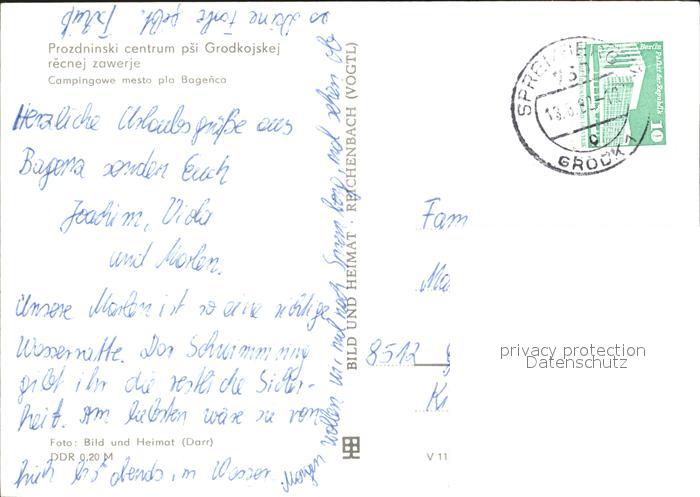 Prozdninski centrum pśi Grodkojskej
rěcnej zawerje
Campingowe mesto pla Bageńca
Herzliche Urlaubsgrüße aus
Bagenz senden Euch
Joachim, Viola
und Marlen.
Unsere Marlen ist so eine richtige
Wasserratte. Der Schwimmring
gibt ihr die restliche Sicher-
heit. Am liebsten wäre sie von
früh bis abends im Wasser.
Morgen wollen wir mal nach Spremberg, mal sehen ob
so Deine Torte gebt.
Foto: Bild und Heimat (Darr)
DDR 0,20 M
BILD UND HEIMAT · REICHENBACH (VOGTL)
V 11
SPREMBERG
GRODK 1
c
Berlin
Palast der Republik
10
Fam
8512
privacy protection
Datenschutz